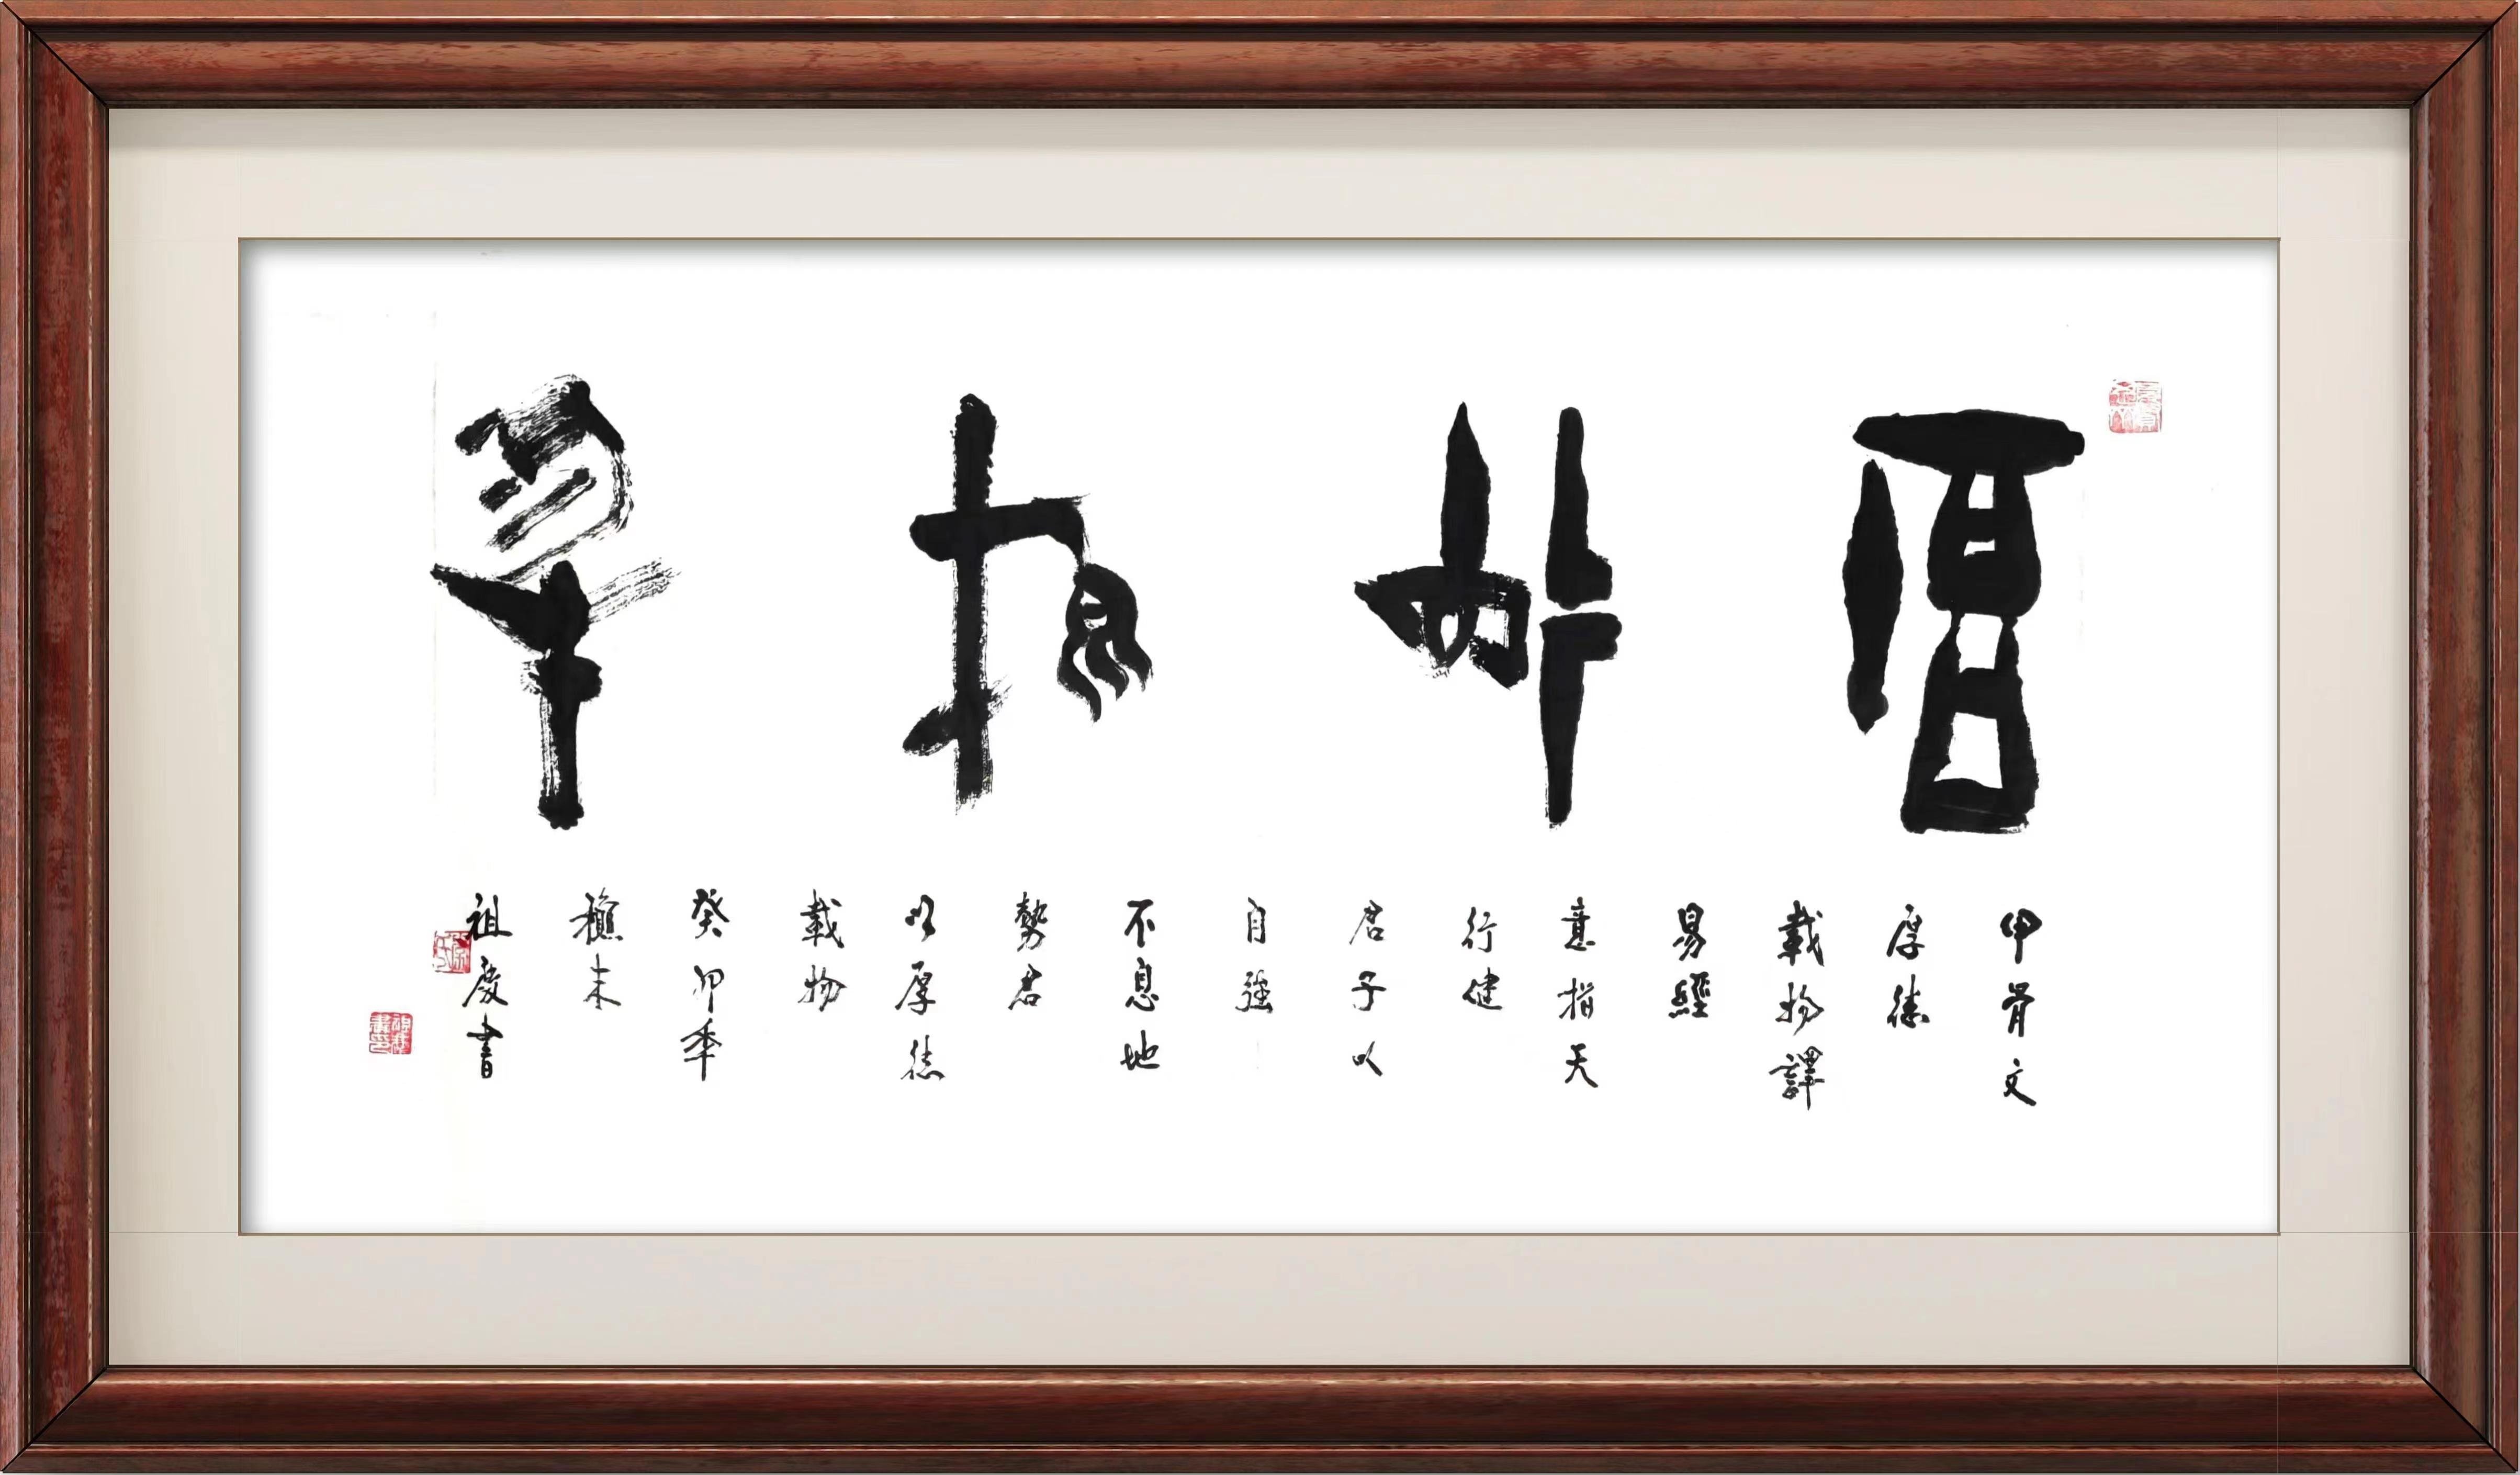 厚德載物
甲骨文
厚德
載物譯
易經
意指天
行健
君子以
自強
不息地
勢君
以厚德
載物
癸卯年
穐末
祖慶書